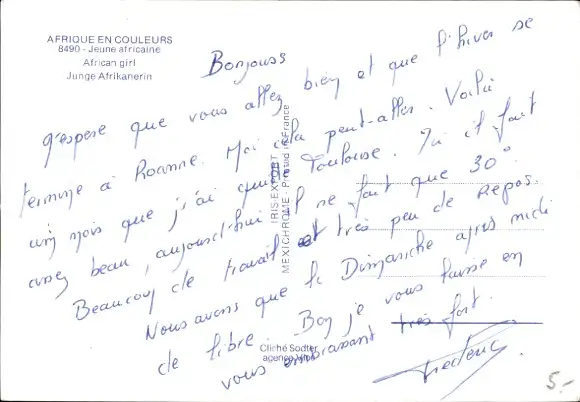 AFRIQUE EN COULEURS
8490 - Jeune africaine
African girl
Junge Afrikanerin
Bonjour
J'espere que vous allez bien et que l'hiver se
termine à Roanne. Moi cela peut-aller. Voilà
un mois que j'ai quitté Toulouse. Ici il fait
assez beau, aujourd'hui il ne fait que 30°.
Beaucoup de travail et très peu de Repos.
Nous avons que le Dimanche apres midi
de libre. Bon je vous laisse en
vous embrassant très fort.
Frederic
IRIS EXPORT
MEXICHROME - Printed in France
Cliché Sodter
5.-